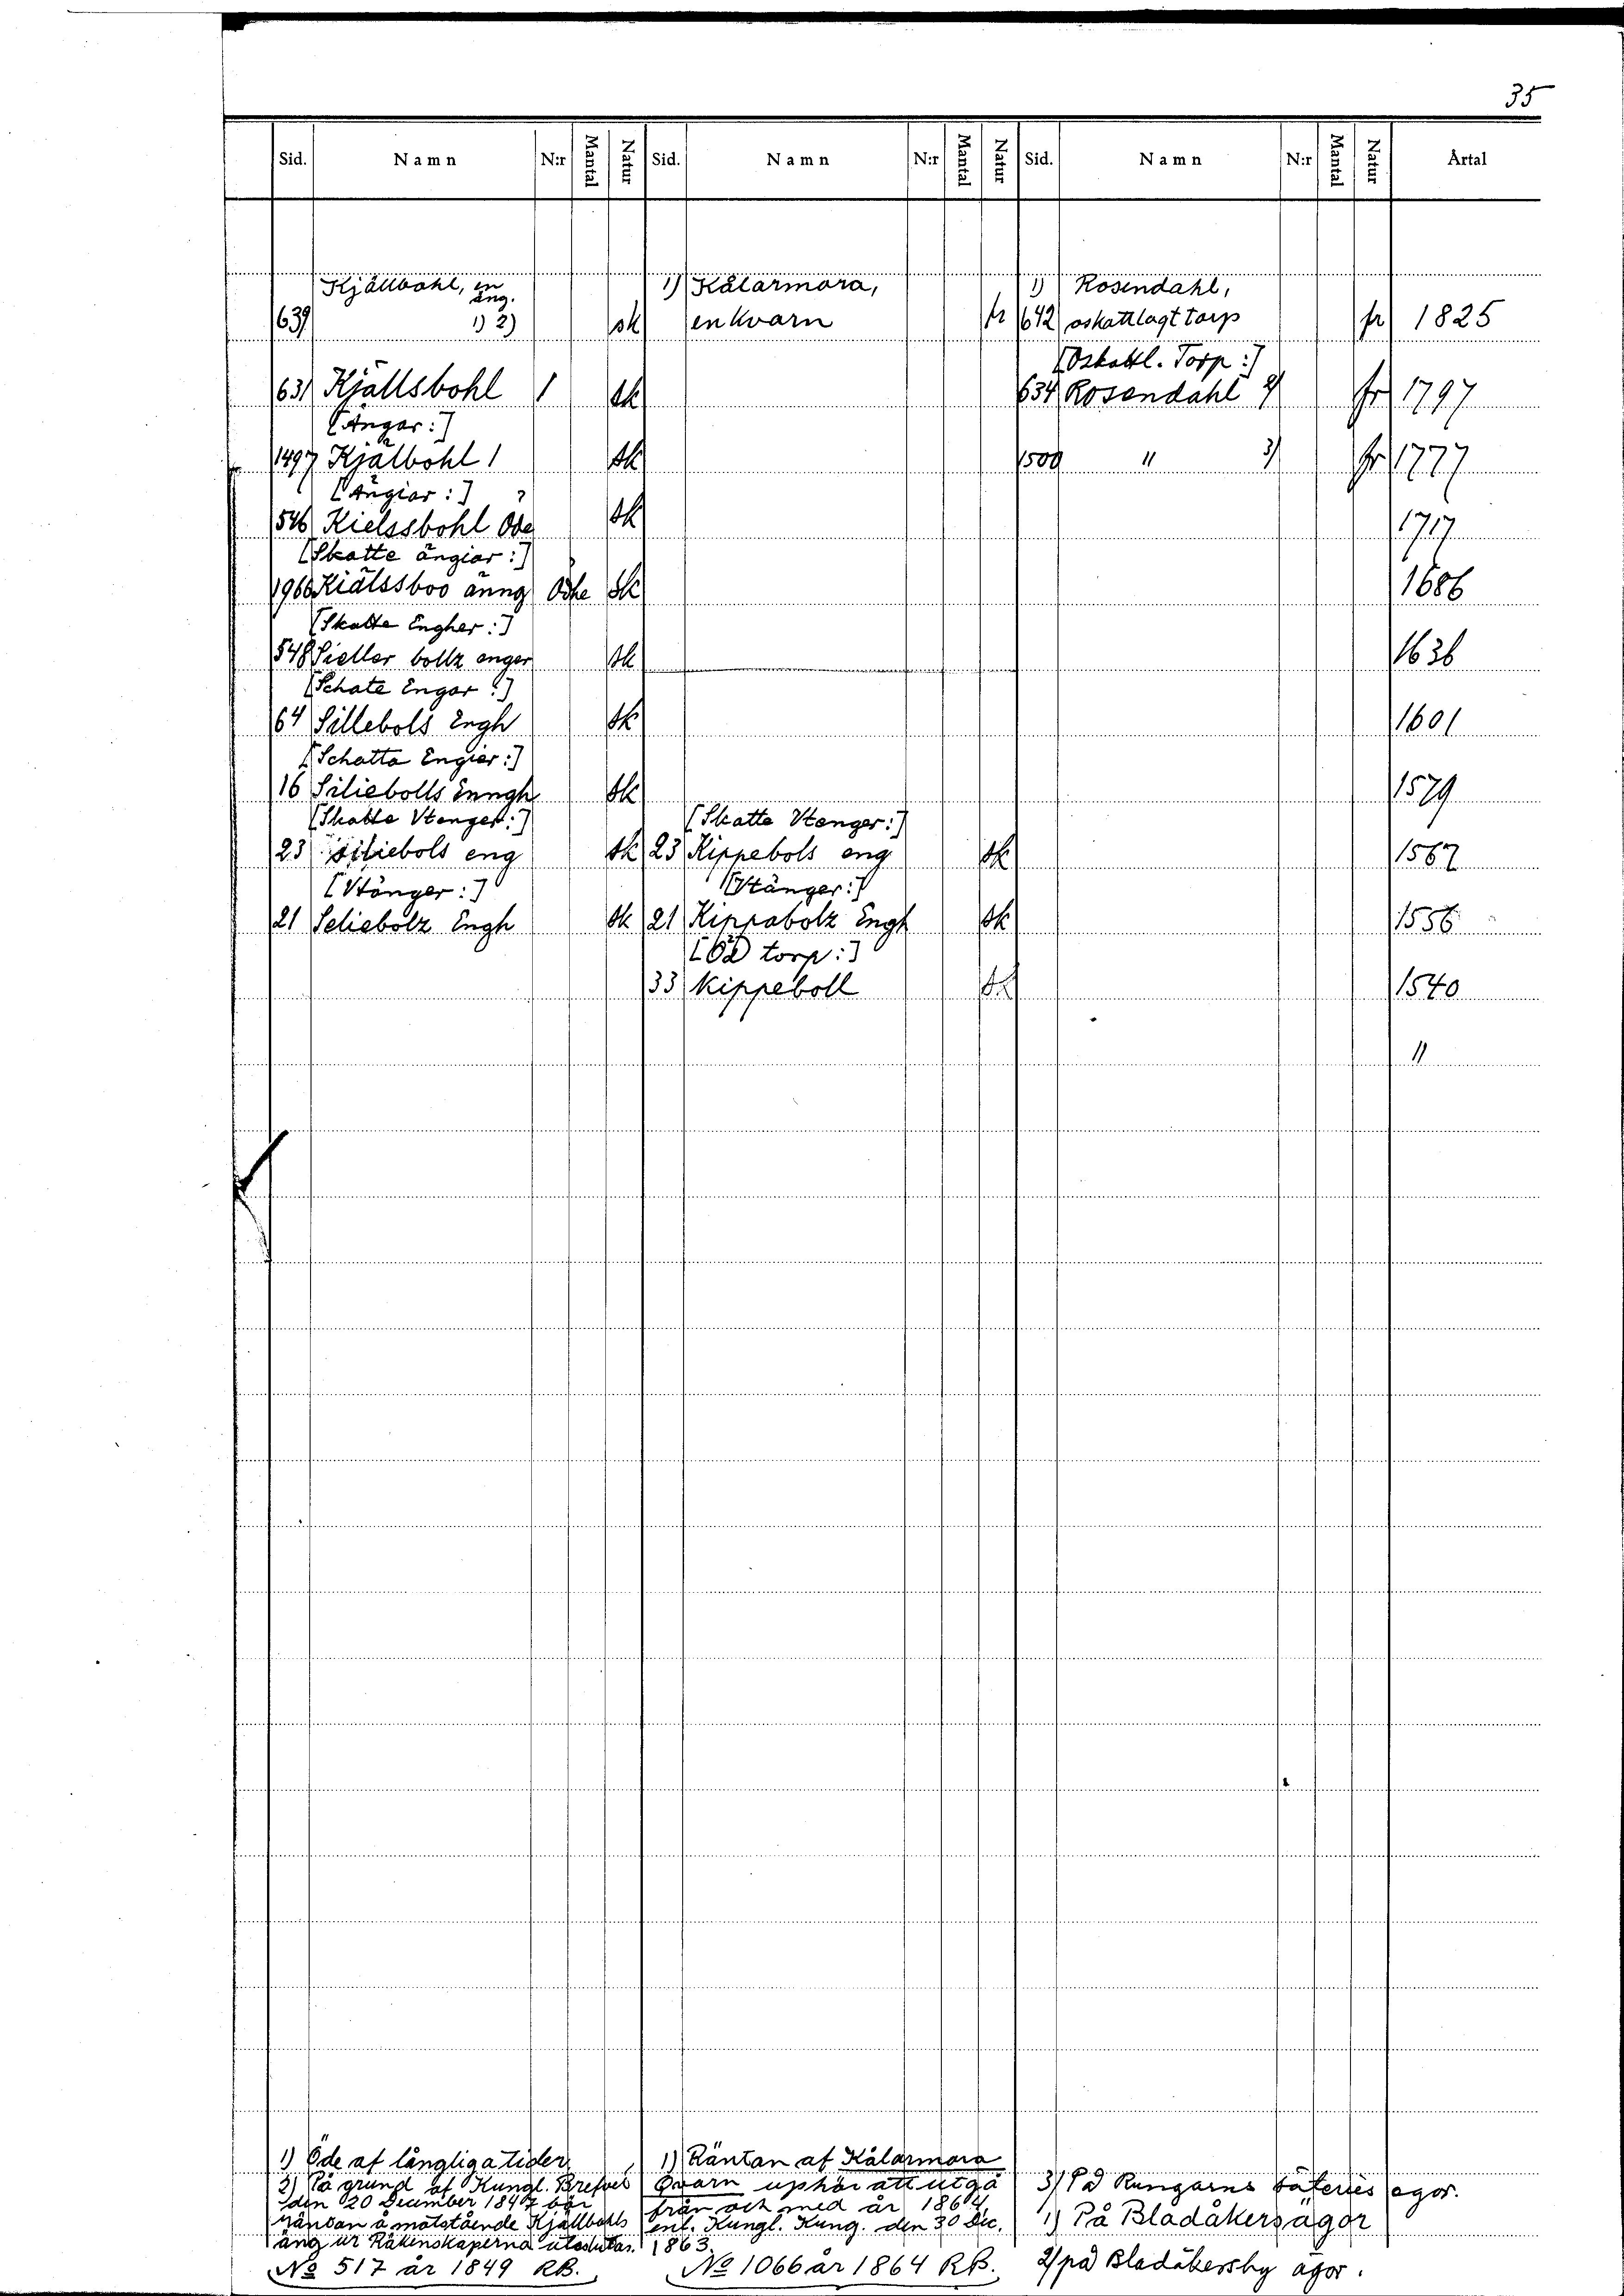 35
Sid. Namn N:r Mantal Natur Sid. Namn N:r Mantal Natur Sid. Namn N:r Mantal Natur Årtal
Kjällbohl, en äng. 1) Kålarmora, 1) Rosendahl,
639 1) 2) sk en kvarn fr 642 oskattlagt torp fr 1825
[Oskattl. Torp:]
631 Kjällsbohl 1 sk 634 Rosendahl 2) fr 1797
[Ängar:]
1497 Kjälbohl 1 sk 1500 " 3) fr 1777
[Ängiar:]
546 Kielssbohl Öde sk 1717
[Skatte ängiar:]
1966 Kiälssboo änng Öde Sk 1686
[Skatte Engher:]
548 Sieller boltz enger sk 1636
[Schate Engar:]
64 Sillebols Engh sk 1601
[Schatta Engier:]
16 Siliebolls Enngh sk 1579
[Skatte Vtenger:] [Skatte Vtenger:]
23 Siliebols eng sk 23 Kippebols eng sk 1567
[Vtänger:] [Vtänger:]
21 Seliebolz Engh sk 21 Kippabolz Engh sk 1556
[ÖD torp:]
33 Kippeboll sk 1540
"
1) Öde af långliga tider
2) På grund af Kungl. Brefvet
den 20 December 1847 bör
räntan å motstående Kjällbohls
äng ur Räkenskaperna uteslutas.
No 517 år 1849 RB.
1) Räntan af Kålarmora
Qvarn uphör att utgå
från och med år 1864
enl. Kungl. Kung. den 30 Dec.
1863.
No 1066 år 1864 RB.
3) På Rungarns säteries egor.
1) På Bladåkers ägor
2) på Bladåkersby ägor.